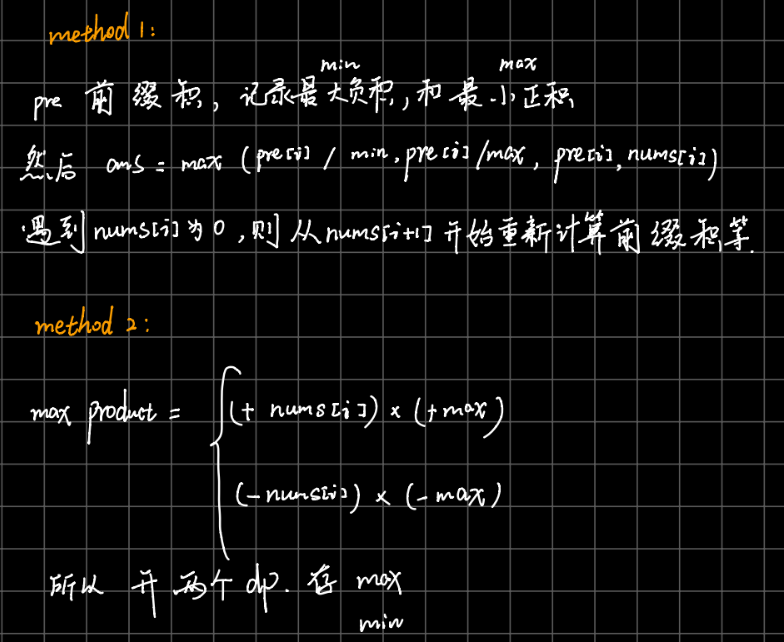 method 1:
min max
pre 前缀积，记录最大负积，和最小正积
然后 ans = max (pre[i] / min, pre[i] / max, pre[i], nums[i])
遇到 nums[i] 为 0，则从 nums[i+1] 开始重新计算前缀积等.
method 2:
max product = { (+ nums[i]) × (+ max)
(- nums[i]) × (- max)
所以 开 两个 dp. 存 max
min